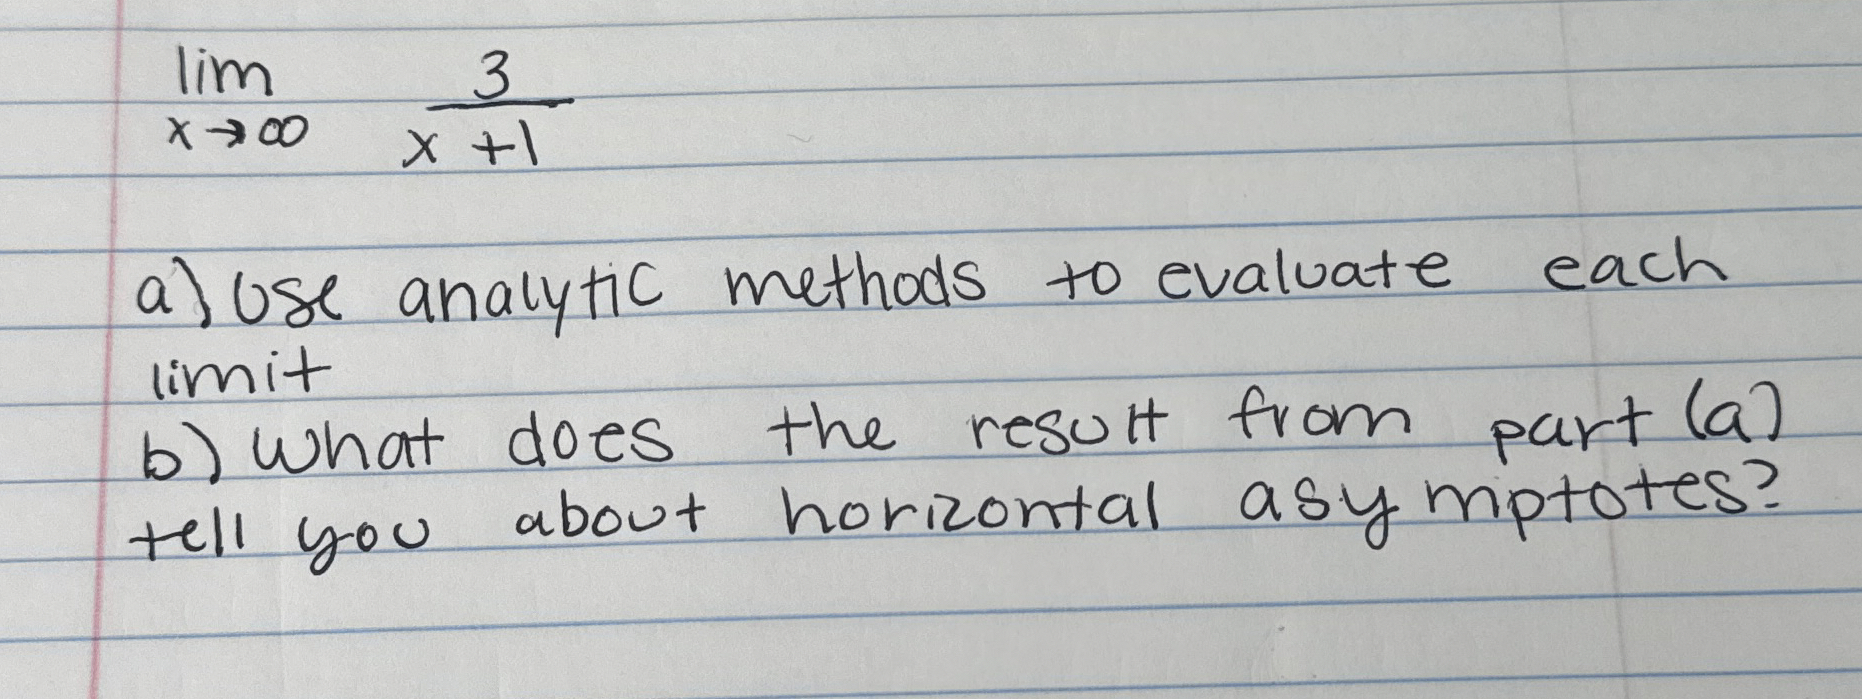 lim 3
x→∞ x +1
a) Use analytic methods to evaluate each
limit
b) What does the result from part (a)
tell you about horizontal asymptotes?